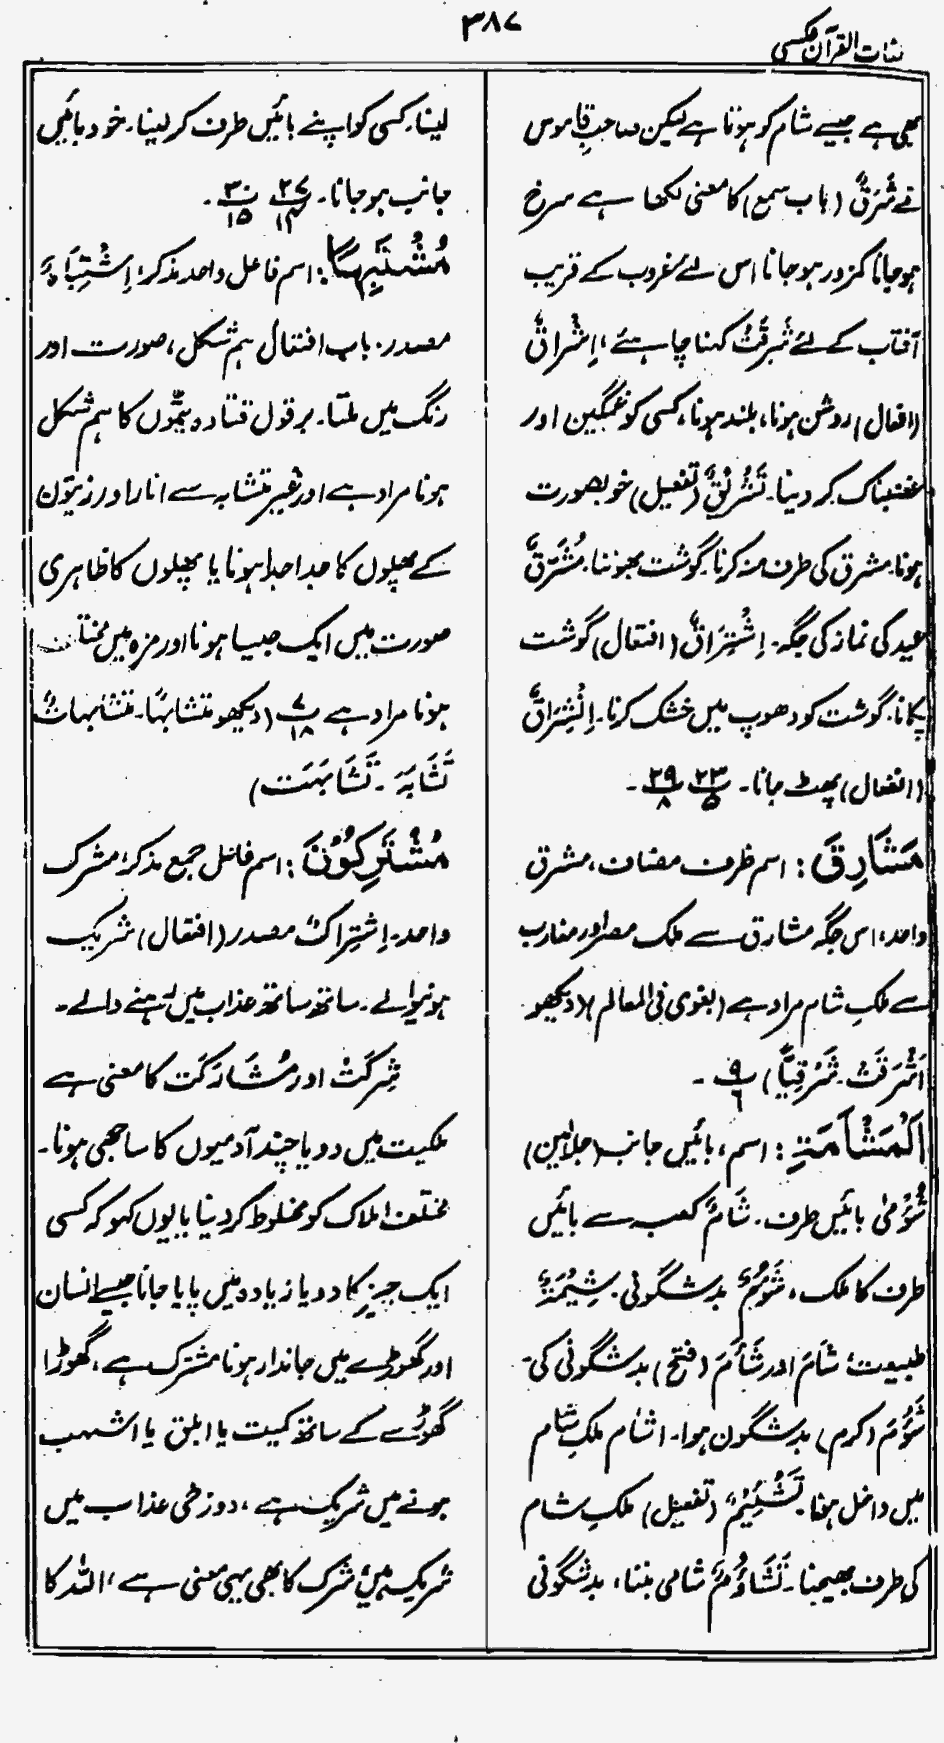 ۳۸۷
لغات القرآن عکسی
بھی ہے جیسے شام کو ہوتا ہے لیکن صاحبِ قاموس
نے شَرَقٌ (باب سمع) کا معنی لکھا ہے سرخ
ہوجانا کمزور ہوجانا اس لئے غروب کے قریب
آفتاب کے لئے شَرِقَتْ کہنا چاہئے، اِشْرَاقٌ
(افعال) روشن ہونا، بلند ہونا، کسی کو غمگین اور
غضبناک کر دینا۔ تَشْرِیْقٌ (تفعیل) خوبصورت
ہونا۔ مشرق کی طرف منہ کرنا۔ گوشت بھوننا۔ مُشَرَّقٌ
عید کی نماز کی جگہ۔ اِشْتِرَاقٌ (افتعال) گوشت
پکانا۔ گوشت کو دھوپ میں خشک کرنا۔ اِنْشِرَاقٌ
(انفعال) پھٹ جانا۔ ۲۳/۵ ۲۹/۸ ۔
مَشَارِقَ : اسم ظرف مضاف، مشرق
واحد، اس جگہ مشارق سے ملک مصر اور مغارب
سے ملکِ شام مراد ہے (بغوی فی المعالم) (دیکھو
اَشْرَقَتْ۔ شَرْقِیًّا) ۹/۶ ۔
اَلْمَشْأَمَۃِ : اسم، بائیں جانب (جلالین)
شُؤْمٰی بائیں طرف۔ شَامٌ کعبہ سے بائیں
طرف کا ملک، شَوْمٌ بدشگونی۔ شِیْمَۃٌ
طبیعت، شَامَ اور شَأَمَ (فتح) بدشگونی کی۔
شَؤُمَ (کرم) بدشگون ہوا۔ اشام ملکِ شام
میں داخل ہوا۔ تَشْئِیْمٌ (تفعیل) ملکِ شام
کی طرف بھیجنا۔ تَشَاؤُمٌ شامی بننا، بدشگونی
لینا۔ کسی کو اپنے بائیں طرف کر لینا۔ خود بائیں
جانب ہو جانا۔ ۲۷/۱۴ ۳۰/۱۵ ۔
مُشْتَبِہًا : اسم فاعل واحد مذکر، اِشْتِبَاہٌ
مصدر۔ باب افتعال ہم شکل، صورت اور
رنگ میں ملتا۔ برقول قتادہ پتّوں کا ہم شکل
ہونا مراد ہے اور غیر متشابہ سے انار اور زیتون
کے پھلوں کا جدا جدا ہونا یا پھلوں کا ظاہری
صورت میں ایک جیسا ہونا اور مزہ میں مختلف
ہونا مراد ہے ۷/۱۸ (دیکھو متشابہًا۔ متشابہاتٌ
تَشَابَہَ ۔ تَشَابَہَت)
مُشْتَرِکُوْنَ : اسم فاعل جمع مذکر، مشرک
واحد۔ اِشْتِرَاکٌ مصدر (افتعال) شریک
ہونیوالے۔ ساتھ ساتھ عذاب میں رہنے والے۔
شِرکَتْ اور مُشَارَکَت کا معنی ہے
ملکیت میں دو یا چند آدمیوں کا ساجھی ہونا۔
مختلف املاک کو مخلوط کر دینا یا یوں کہو کہ کسی
ایک چیز کا دو یا زیادہ میں پایا جانا جیسے انسان
اور گھوڑے میں جاندار ہونا مشترک ہے، گھوڑا
گھوڑے کے ساتھ کمیت یا ابلق یا اشہب
ہونے میں شریک ہے، دوزخی عذاب میں
شریک ہیں، شرک کا بھی یہی معنی ہے، اللہ کا